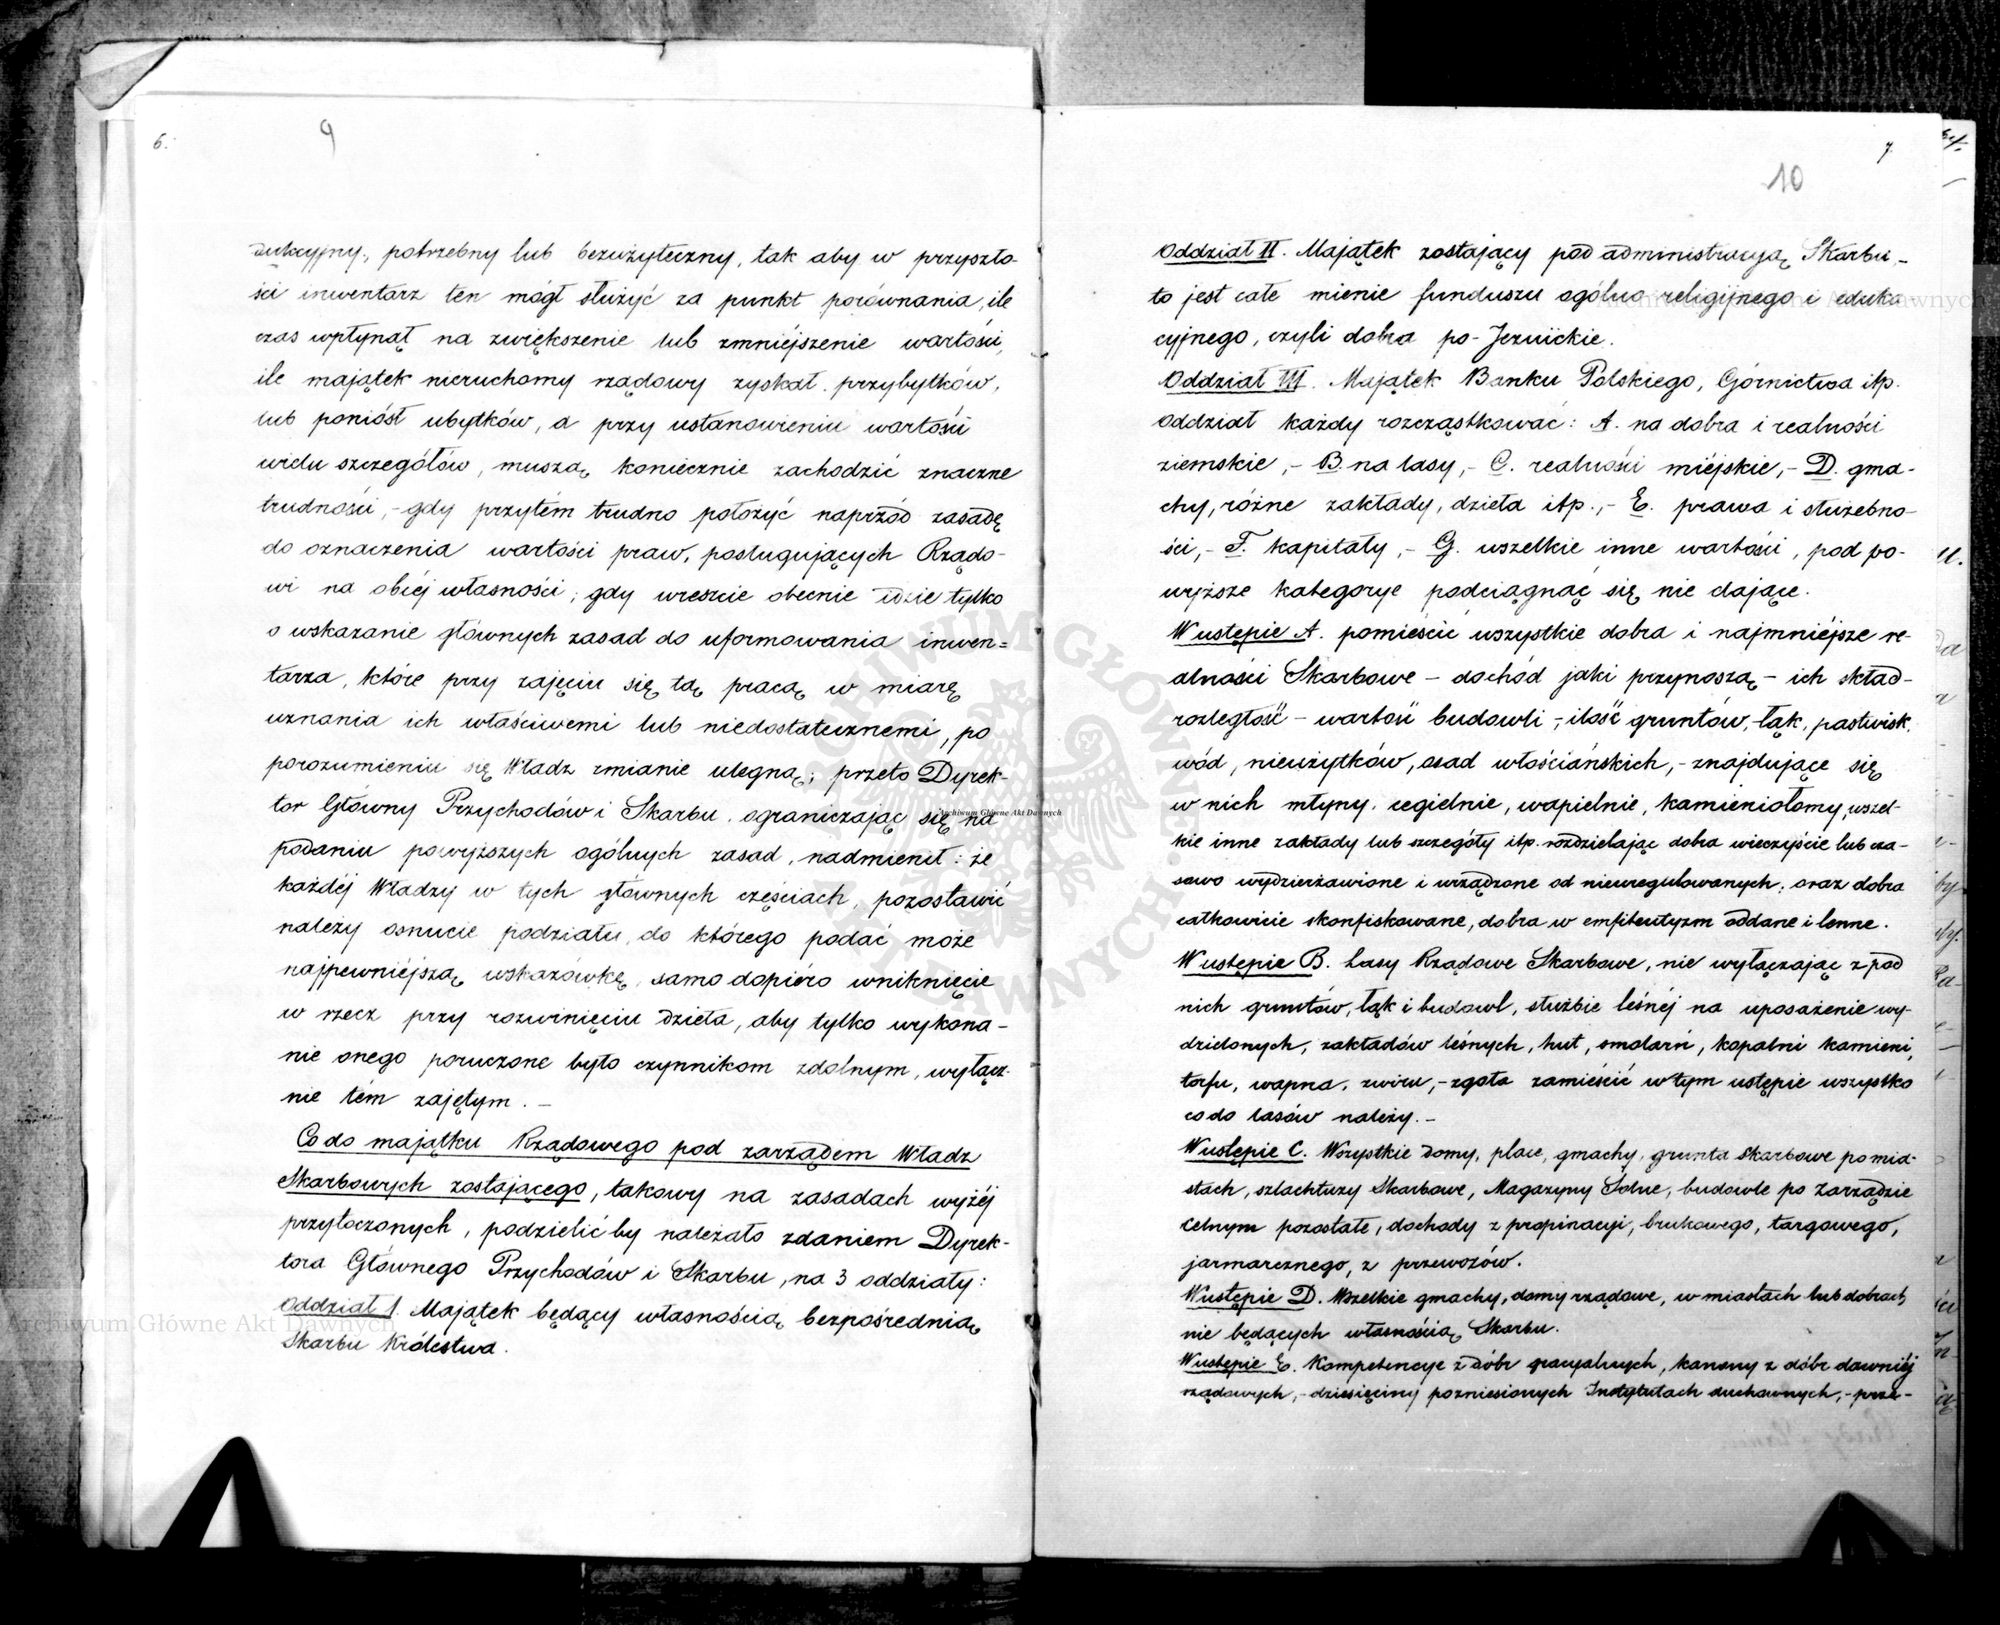 6.
9
dukcyjny, potrzebny lub bezużyteczny, tak aby w przyszło-
ści inwentarz ten mógł służyć za punkt porównania, ile
czas wpłynął na zwiększenie lub zmniéjszenie wartości,
ile majątek nieruchomy rządowy zyskał przybytków,
lub poniósł ubytków, a przy ustanowieniu wartości
wielu szczegółów, muszą koniecznie zachodzić znaczne
trudności, - gdy przytém trudno położyć naprzód zasadę
do oznaczenia wartości praw, posługujących Rządo-
wi na obcéj własności; gdy wreszcie obecnie idzie tylko
o wskazanie głównych zasad do uformowania inwen=
tarza, które przy zajęciu się tą pracą w miarę
uznania ich właściwemi lub niedostatecznemi, po
porozumieniu się Władz zmianie ulegną; przeto Dyrek-
tor Główny Przychodów i Skarbu, ograniczając się na
podaniu powyższych ogólnych zasad, nadmienił: że
każdéj Władzy w tych głównych częściach, pozostawić
należy osnucie podziału, do którego podać może
najpewniéjszą wskazówkę, samo dopiéro wniknięcie
w rzecz przy rozwinięciu dzieła, aby tylko wykona-
nie onego poruczone było czynnikom zdolnym, wyłącz-
nie tém zajętym. -
Co do majątku Rządowego pod zarządem Władz
Skarbowych zostającego, takowy na zasadach wyżéj
przytoczonych, podzielić by należało zdaniem Dyrek-
tora Głównego Przychodów i Skarbu, na 3 oddziały:
Oddział I. Majątek będący własnością bezpośrednią
Skarbu Królestwa.
7.
10
Oddział II. Majątek zostający pod administracyą Skarbu, -
to jest całe mienie funduszu ogólno religijnego i eduka-
cyjnego, czyli dobra po-Jezuickie.
Oddział III. Majątek Banku Polskiego, Górnictwa itp.
Oddział każdy rozcząstkować: A. na dobra i realności
ziemskie, - B. na lasy, - C. realności miéjskie, - D. gma-
chy, różne zakłady, dzieła itp., - E. prawa i służebno-
ści, - F. kapitały, - G. wszelkie inne wartości, pod po-
wyższe kategorye podciągnąć się nie dające.
W ustępie A. pomieścić wszystkie dobra i najmniéjsze re-
alności Skarbowe - dochód jaki przynoszą - ich skład -
rozległość - wartość budowli -, ilość gruntów, łąk, pastwisk,
wód, nieużytków, osad włościańskich, - znajdujące się
w nich młyny, cegielnie, wapielnie, kamieniołomy, wszel-
kie inne zakłady lub szczegóły itp. rozdzielając dobra wieczyście lub cza-
sowo wydzierżawione i urządzone od nieuregulowanych; oraz dobra
całkowicie skonfiskowane, dobra w emfiteutyzm oddane i lenne.
W ustępie B. Lasy Rządowe Skarbowe, nie wyłączając z pod
nich gruntów, łąk i budowl, służbie leśnéj na uposażenie wy-
dzielonych, zakładów leśnych, hut, smolarń, kopalni kamieni,
torfu, wapna, żwiru, - zgoła zamieścić w tym ustępie wszystko
co do lasów należy. -
W ustępie C. Wszystkie Domy, place, gmachy, grunta skarbowe po mia-
stach, szlachtuzy Skarbowe, Magazyny Solne, budowle po Zarządzie
Celnym pozostałe, dochody z propinacyi, brukowego, targowego,
jarmarcznego, z przewozów.
W ustępie D. Wszelkie gmachy, domy rządowe, w miastach lub dobrach
nie będących własnością Skarbu.
W ustępie E. Kompetencye z dóbr gracyalnych, kanony z dóbr dawniéj
rządowych, - dziesięciny po zniesionych Instytutach duchownych, - prze-
Archiwum Główne Akt Dawnych
Archiwum Główne Akt Dawnych
Archiwum Główne Akt Dawnych